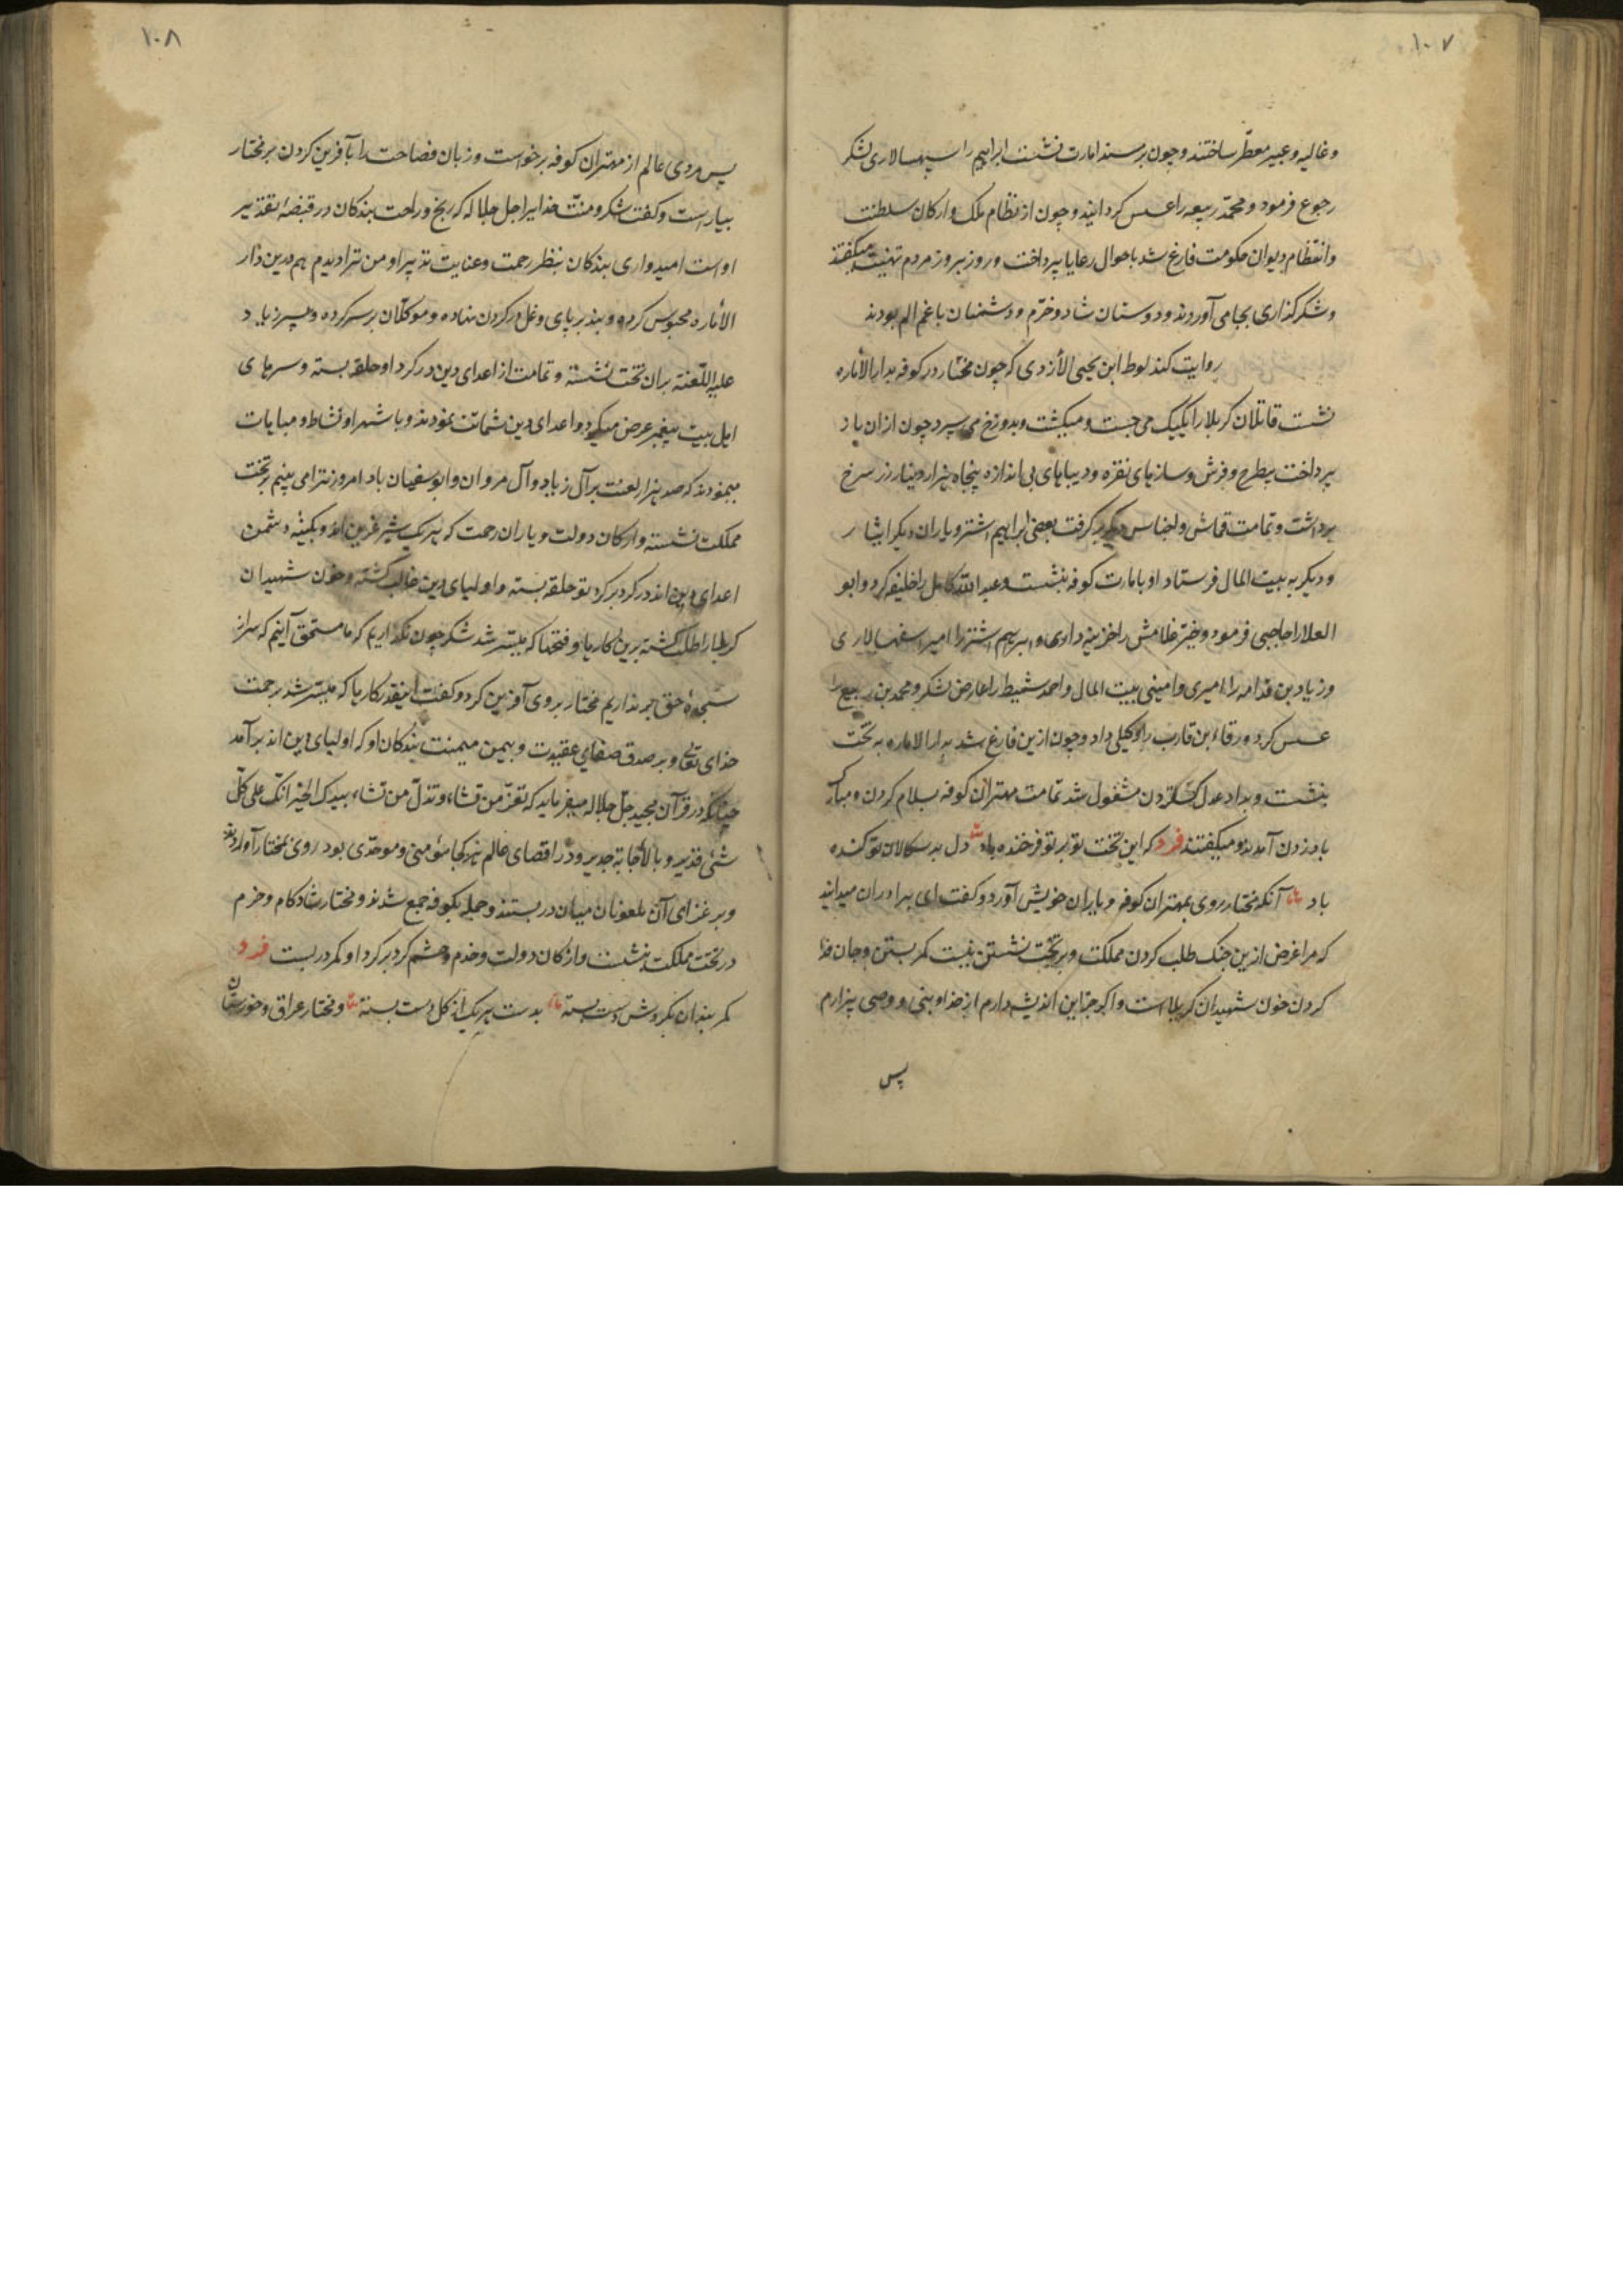 ۱۰۷
وغالیه وعبیر معطّر ساختند وچون بر مسند امارت نشست ابراهیم را سپهسالاری لشکر
رجوع فرمود و محمّد ربیعه را عسس کردانید وچون از نظام ملک وارکان سلطنت
وانتظام دیوان حکومت فارغ شد باحوال رعایا پرداخت وروز بروز مردم تهنیت میکفتند
وشکرکذاری بجا می آوردند ودوستان شاد وخرّم ودشمنان باغم الم بودند
روایت کند لوط ابن یحیی الأزدی که چون مختار در کوفه بدار الأماره
نشست قاتلان کربلا را یکیک می جست ومیکشت وبدوزخ می سپرد چون ازان باز
پرداخت بطرح وفرش وسازهای نقره ودیباهای بی اندازه پنجاه هزار دینار زر سرخ
برداشت وتمامت قماش واجناس دیکر بر کرفت بعضی ابراهیم اشتر ویاران دیکر ایثار
ودیکر به بیت المال فرستاد او بامارت کوفه بنشست وعبد اللّه کامل را خلیفه کرد وابو
العلا را حاجبی فرمود وخیّر غلامش را خزینه داری وابراهیم اشتر را امیر اسفهسالاری
وزیاد بن قدامه را امیری وامینی بیت المال واحمد شمیط را عارض لشکر ومحمد بن ربیع را
عسس کرد ورقاء بن قارب را وکیلی داد وچون ازین فارغ شد بدار الاماره به تخت
بنشست وبداد عدل کستردن مشغول شد تمامت مهتران کوفه بسلام کردن ومبارک
باد زدن آمدند ومیکفتند فرد که این تخت تو بر تو فرخنده باد دل بد سکالان تو کنده
باد آنکه مختار روی بمهتران کوفه ویاران خویش آورد وکفت ای برادران میدانید
که مرا غرض ازین جنک طلب کردن مملکت وبر تخت نشستن نیست کمر بستن وجان فدا
کردن خون شهیدان کربلا است واکر جز این اندیشه دارم از خدا ونبی ووصی بیزارم
پس
۱۰۸
پس مردی عالم از مهتران کوفه برخواست وزبان فصاحت را بآفرین کردن بر مختار
بیاراست وکفت شکر ومنّت خدایرا جل جلاله که رنج وراحت بندکان در قبضهٔ تقدیر
اوست امیدواری بندکان بنظر رحمت وعنایت تدبیر او من ترا دیدم هم درین دار
الأماره محبوس کرده وبند بر پای وغل در کردن نهاده وموکلان بر سر کرده وپسر زیاد
علیه اللّعنه بران تخت نشسته وتمامت از اعدای دین در کرد او حلقه بسته وسرهای
اهل بیت پیغمبر عرض میکرد واعدای دین شماتت نمودند وباشهر او نشاط ومباهات
مینمودند که صد هزار لعنت بر آل زیاد وآل مروان وابوسفیان باد امروز ترا می بینم بر تخت
مملکت نشسته وارکان دولت ویاران رحمت که هر یک شیر غرین اند وبکینهٔ دشمن
اعدای دین اند در کرد بر کرد تو حلقه بسته واولیای دین غالب کشته وخون شهیدان
کربلا را طلب کشته برین کارها وفتحها که میسّر شد شکر چون نکذاریم که ما مستحق آنیم که سر از
سجدهٔ حق بر نداریم مختار بر وی آفرین کرد وکفت اینقدر کارها که میسّر شد برحمت
خدای تعالی وبر صدق صفای عقیدت وبیمن میمنت بندکان او که اولیای دین اند بر آمد
چنانکه در قرآن مجید جلّ جلاله میفرماید که تعزّ من تشاء وتذلّ من تشاء بیدک الخیر انّک علی کلّ
شئی قدیر وبالأجابة جدیر ودر اقصای عالم هر کجا مؤمنی وموحّدی بود روی بمختار آوردند
وبر غزای آن ملعونان میان در بستند وجمله بکوفه جمع شدند ومختار شادکام وخرم
در تخت مملکت بنشست وارکان دولت وخدم وحشم کرد بر کرد او کمر در بست فرد
کمر بندان بکروش دست بسته بدست هر یک از کل دست بسته ومختار عراق وخورستان